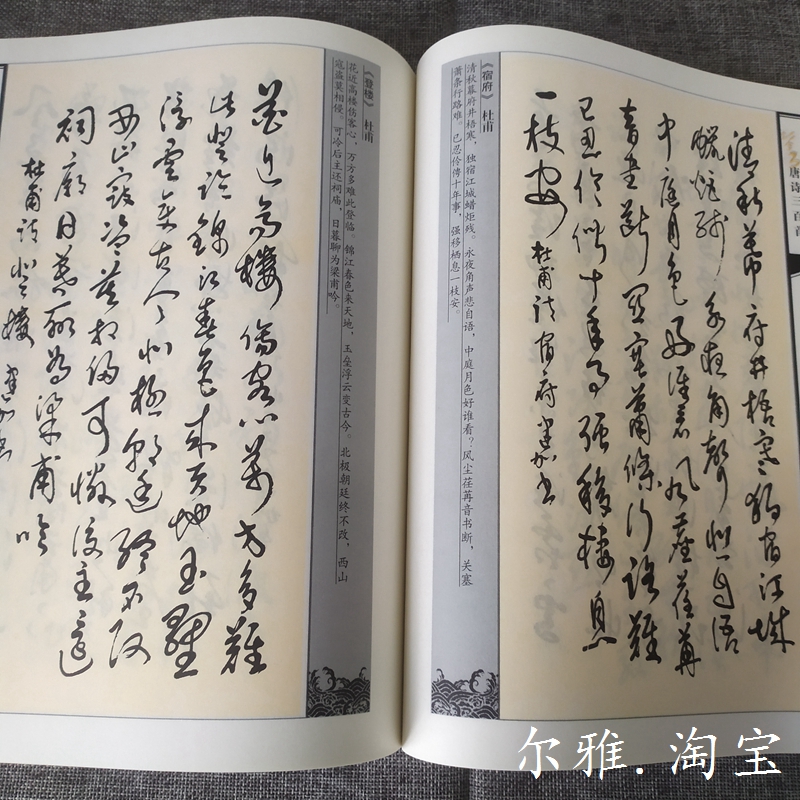 唐诗三百首
清秋幕府井梧寒獨宿江城
蠟炬殘永夜角聲悲自語
中庭月色好誰看風塵荏苒
音書斷關塞蕭條行路難
已忍伶俜十年事強移棲息
一枝安 杜甫詩宿府
《宿府》 杜甫
清秋幕府井梧寒，独宿江城蜡炬残。永夜角声悲自语，中庭月色好谁看？风尘荏苒音书断，关塞
萧条行路难。已忍伶俜十年事，强移栖息一枝安。
《登楼》 杜甫
花近高楼伤客心，万方多难此登临。锦江春色来天地，玉垒浮云变古今。北极朝廷终不改，西山
寇盗莫相侵。可冷后主还祠庙，日暮聊为梁甫吟。
花近高樓傷客心萬方多難
此登臨錦江春色來天地玉壘
浮雲變古今北極朝廷終不改
西山寇盜莫相侵可憐後主還
祠廟日暮聊為梁甫吟
杜甫詩登樓
尔雅.淘宝